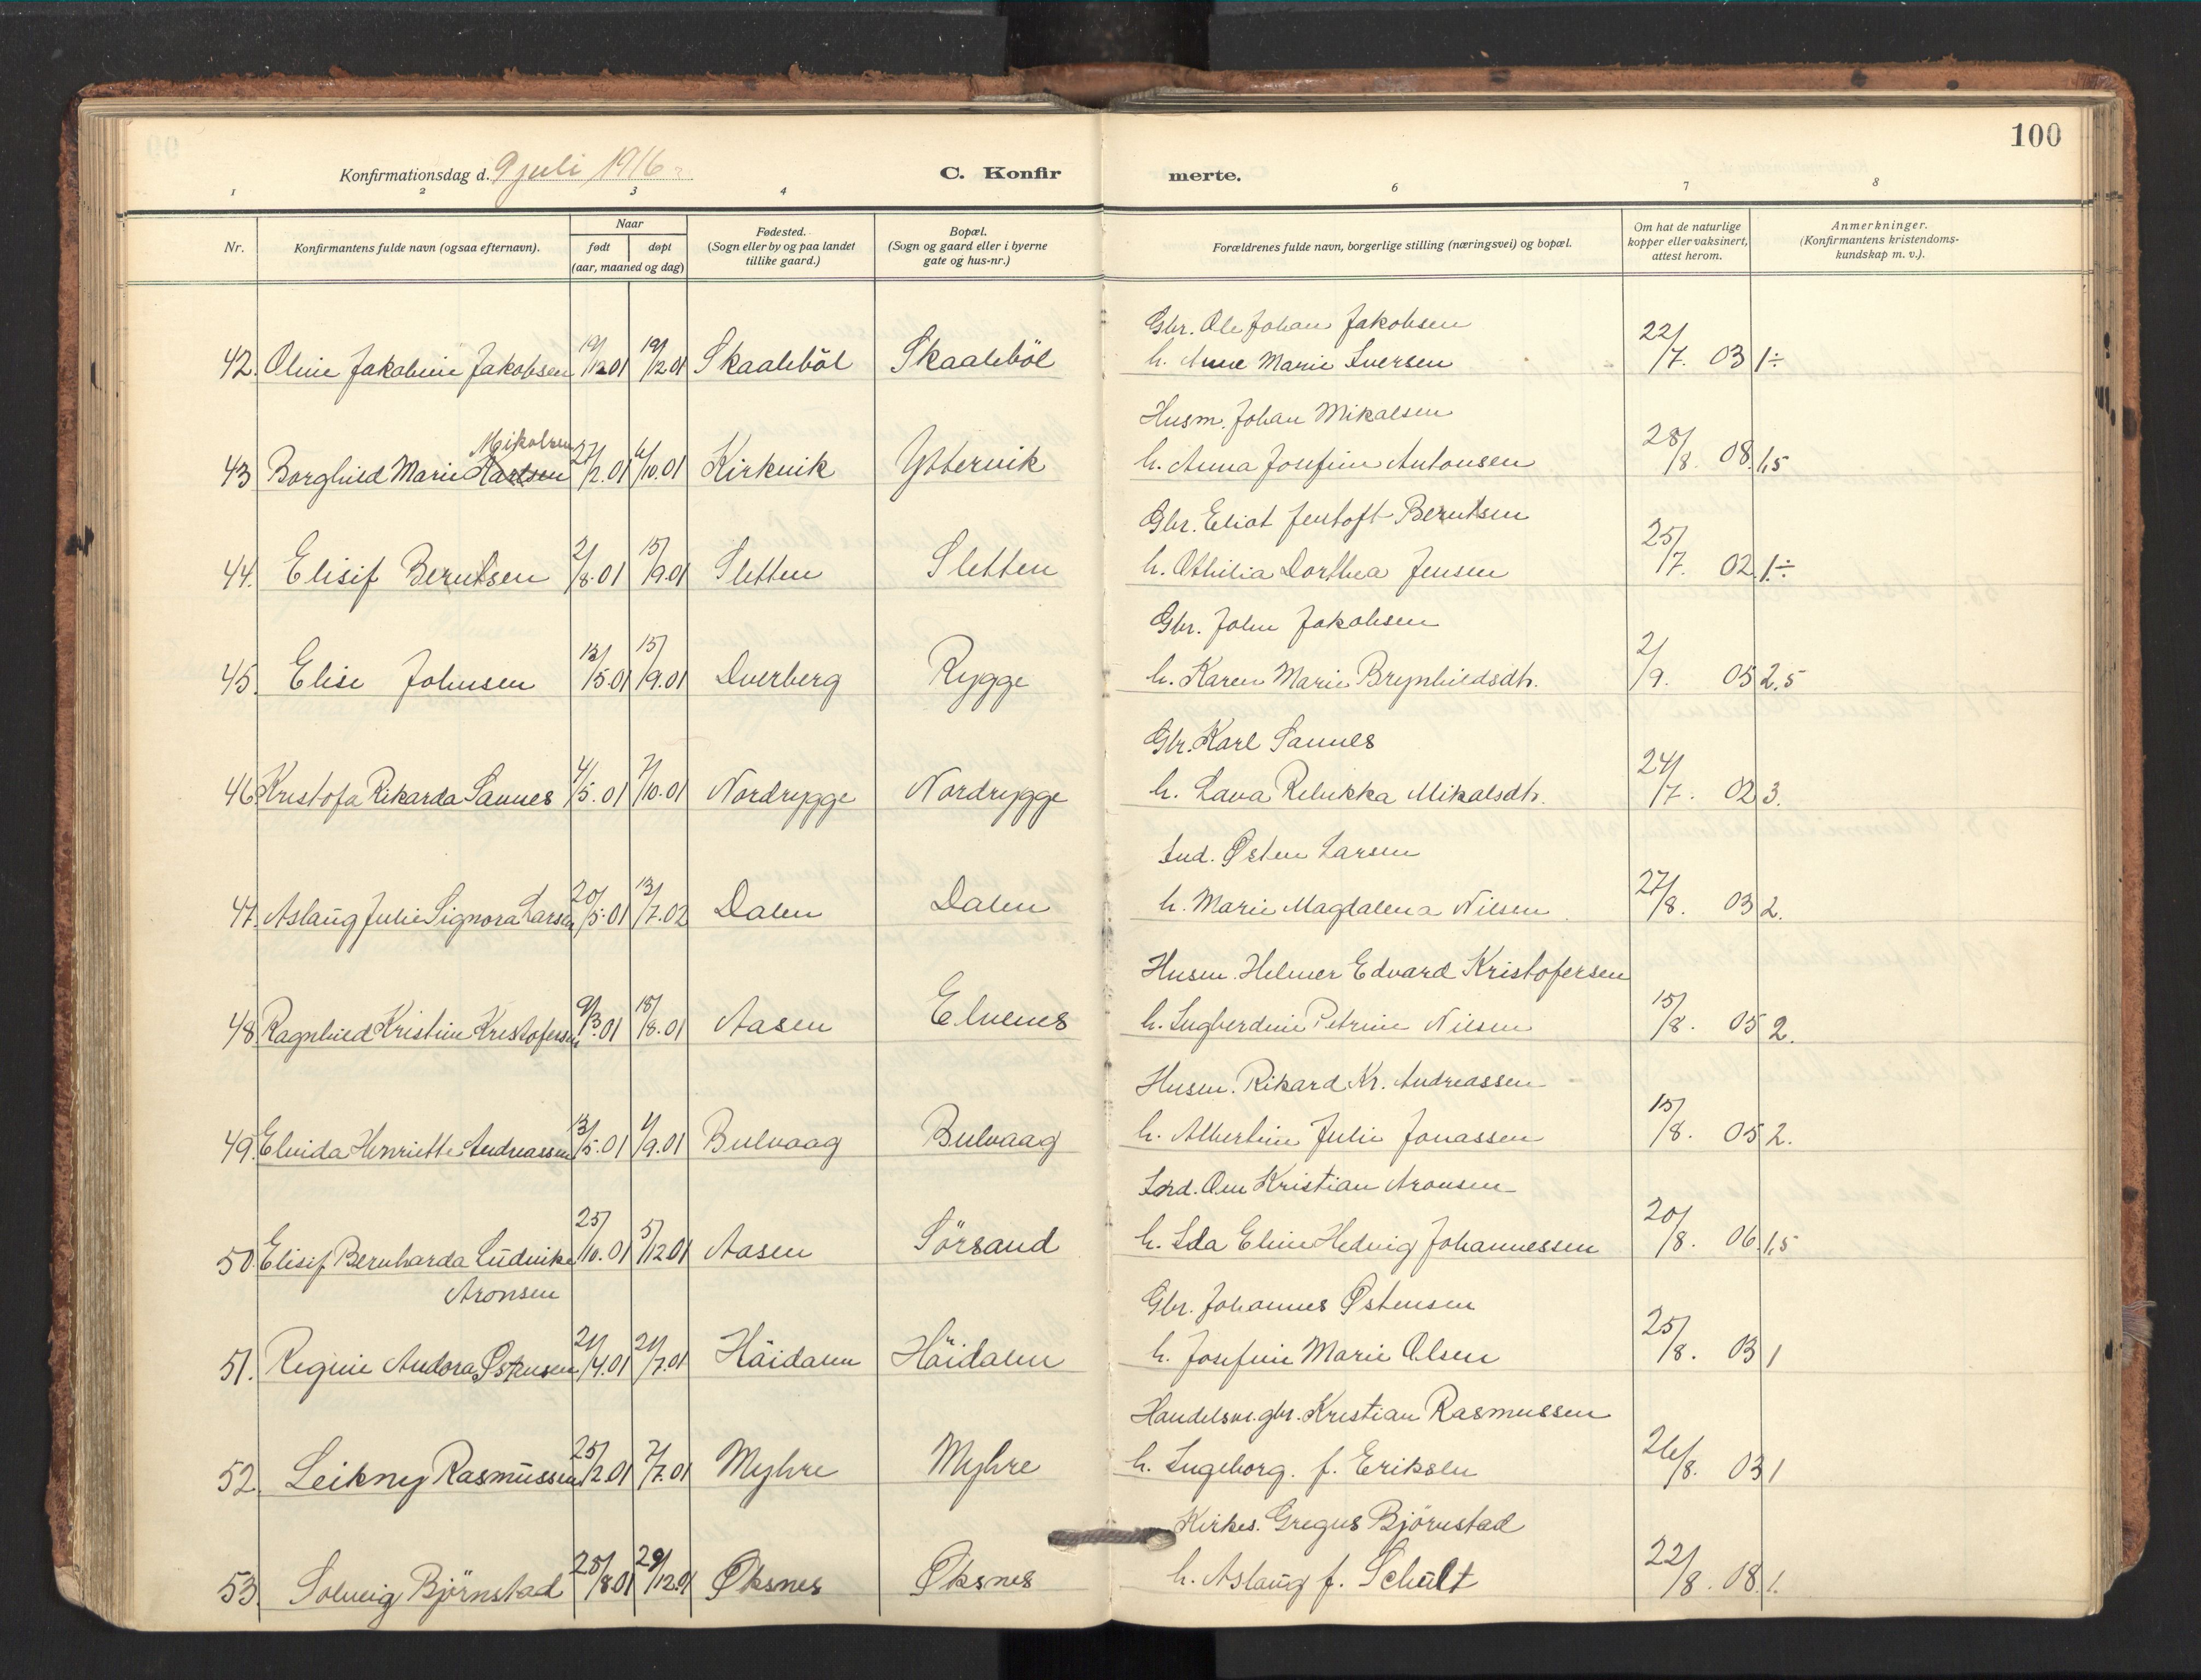 100
Konfirmationsdag d. 9 juli 1916
C. Konfir merte.
1 2 3 4 6 7 8
Nr.
Konfirmantens fulde navn (ogsaa efternavn).
Naar
født døpt
(aar, maaned og dag)
Fødested.
(Sogn eller by og paa landet
tillike gaard.)
Bopæl.
(Sogn og gaard eller i byerne
gate og hus-nr.)
Forældrenes fulde navn, borgerlige stilling (næringsvei) og bopæl.
Om hat de naturlige
kopper eller vaksinert,
attest herom.
Anmerkninger.
(Konfirmantens kristendoms-
kundskap m. v.).
Gbr. Ole Johan Jakobsen
42. Oline Jakobine Jakobsen 19/12 01 19/12 01 Skaaleböl Skaaleböl h. Anne Marie Iversen 22/7. 03 1÷
Husm. Johan Mikalsen
Mikalsen
43 Borghild Marie Karlsen 27/2.01 6/10.01 Kirkvik Yttervik h. Anna Josefine Antonsen 28/8. 08. 1,5
Gbr. Eliot Jentoft Berntsen
44. Elisif Berntsen 2/8.01 15/9.01 Sletten Sletten h. Othilia Dorthea Jensen 25/7. 02. 1.÷
Gbr. John Jakobsen
45. Elise Johnsen 13/5.01 15/9.01 Dverberg Rygge h. Karen Marie Brynhildsdtr. 2/9. 05 2,5
Gbr. Karl Sannes
46. Kristofa Rikarda Sannes 4/5.01 7/10.01 Nordrygge Nordrygge h. Lava Rebekka Mikalsdtr. 24/7. 02 3.
Ind. Østen Larsen
47. Aslaug Julie Signora Larsen 20/5.01 13/7.02 Dalen Dalen h. Marie Magdalena Nilsen 27/8. 03 2.
Husm. Helmer Edvard Kristofersen
48 Ragnhild Kristine Kristofersen 9/3.01 18/8.01 Aasen Elvenes h. Ingberdine Petrine Nilsen 15/8. 05 2.
Husm. Rikard Kr. Andreassen
49. Elvida Henriette Andreassen 13/5.01 1/9.01 Bulvaag Bulvaag h. Albertine Julie Jonassen 15/8. 05 2.
Ind. Ove Kristian Aronsen
50. Elisif Bernharda Ludvike 25/10.01 5/12 01 Aasen Sörsand h. Ida Eline Hedvig Johannessen 20/8. 06. 1,5
Aronsen
Gbr. Johannes Østensen
51. Regine Andora Østensen 21/4.01 21/7.01 Häidalen Häidalen h. Josefine Marie Olsen 25/8. 03 1
Handelsm. gbr. Kristian Rasmussen
52. Leikny Rasmussen 25/2.01 7/7.01 Myhre Myhre h. Ingeborg. f. Eriksen 26/8. 03 1
Kirkes. Gregus Björnstad
53. Solveig Björnstad 25/8.01 29/12.01 Øksnes Øksnes h. Aslaug f. Schult 22/8. 08. 1.